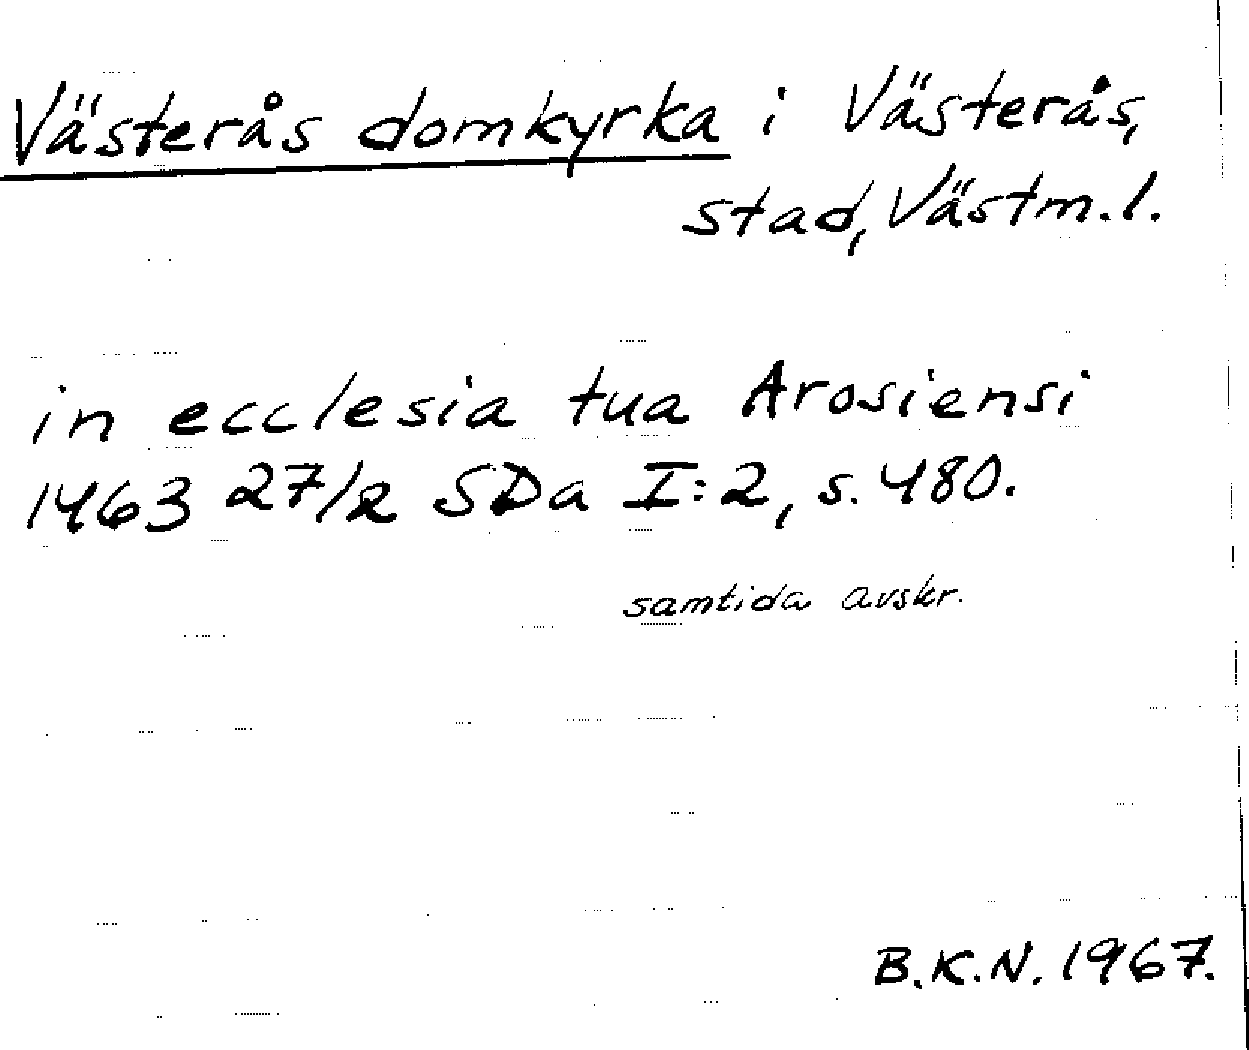 Västerås domkyrka i Västerås,
stad, Västm.l.
in ecclesia tua Arosiensi
1463 27/2 SDa I:2, s. 480.
samtida avskr.
B.K.N. 1967.